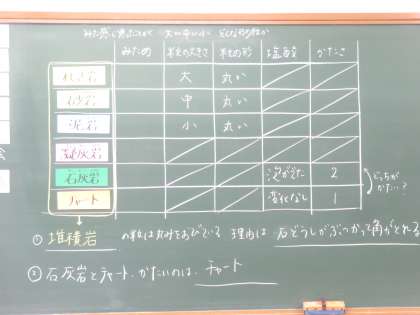 みため 粒の大きさ 粒の形 塩酸 かたさ
れき岩 大 丸い
砂岩 中 丸い
泥岩 小 丸い
凝灰岩
石灰岩 泡がでた 2
チャート 変化なし 1
どっちがかたい？
① 堆積岩 の粒は丸みをおびている 理由は 石どうしがぶつかって角がとれる
② 石灰岩とチャート、かたいのは、チャート